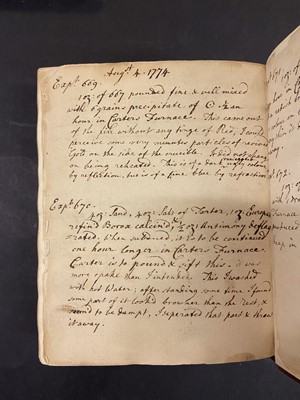 Augst 4. 1774
Expt 669.
1oz: of 667 pounded fine & well mixed
with 6 grains precipitate of C. ½ an
hour in Carters Furnace. This came out
of the fire without any tinge of Red, I could
perceive some very minute particles of revived
Gold on the side of the crucible. It did not change
on being reheated. This is of a dark
by reflection, but is of a fine blue by refraction.
Expt 670.
4oz: Sand, 4oz: Salt of Tartar, 1oz:
refind Borax calcined, ½ oz: Antimony deflag
orated, when subdued, it is to be continued
one hour longer in Carters Furnace
Carter is to pound & sift this. it was
more opake than I intended. This I washed
with hot Water; after standing some time I found
some part of it looked browner than the rest, &
seemd to be dampt, I seperated that part & threw
it away.